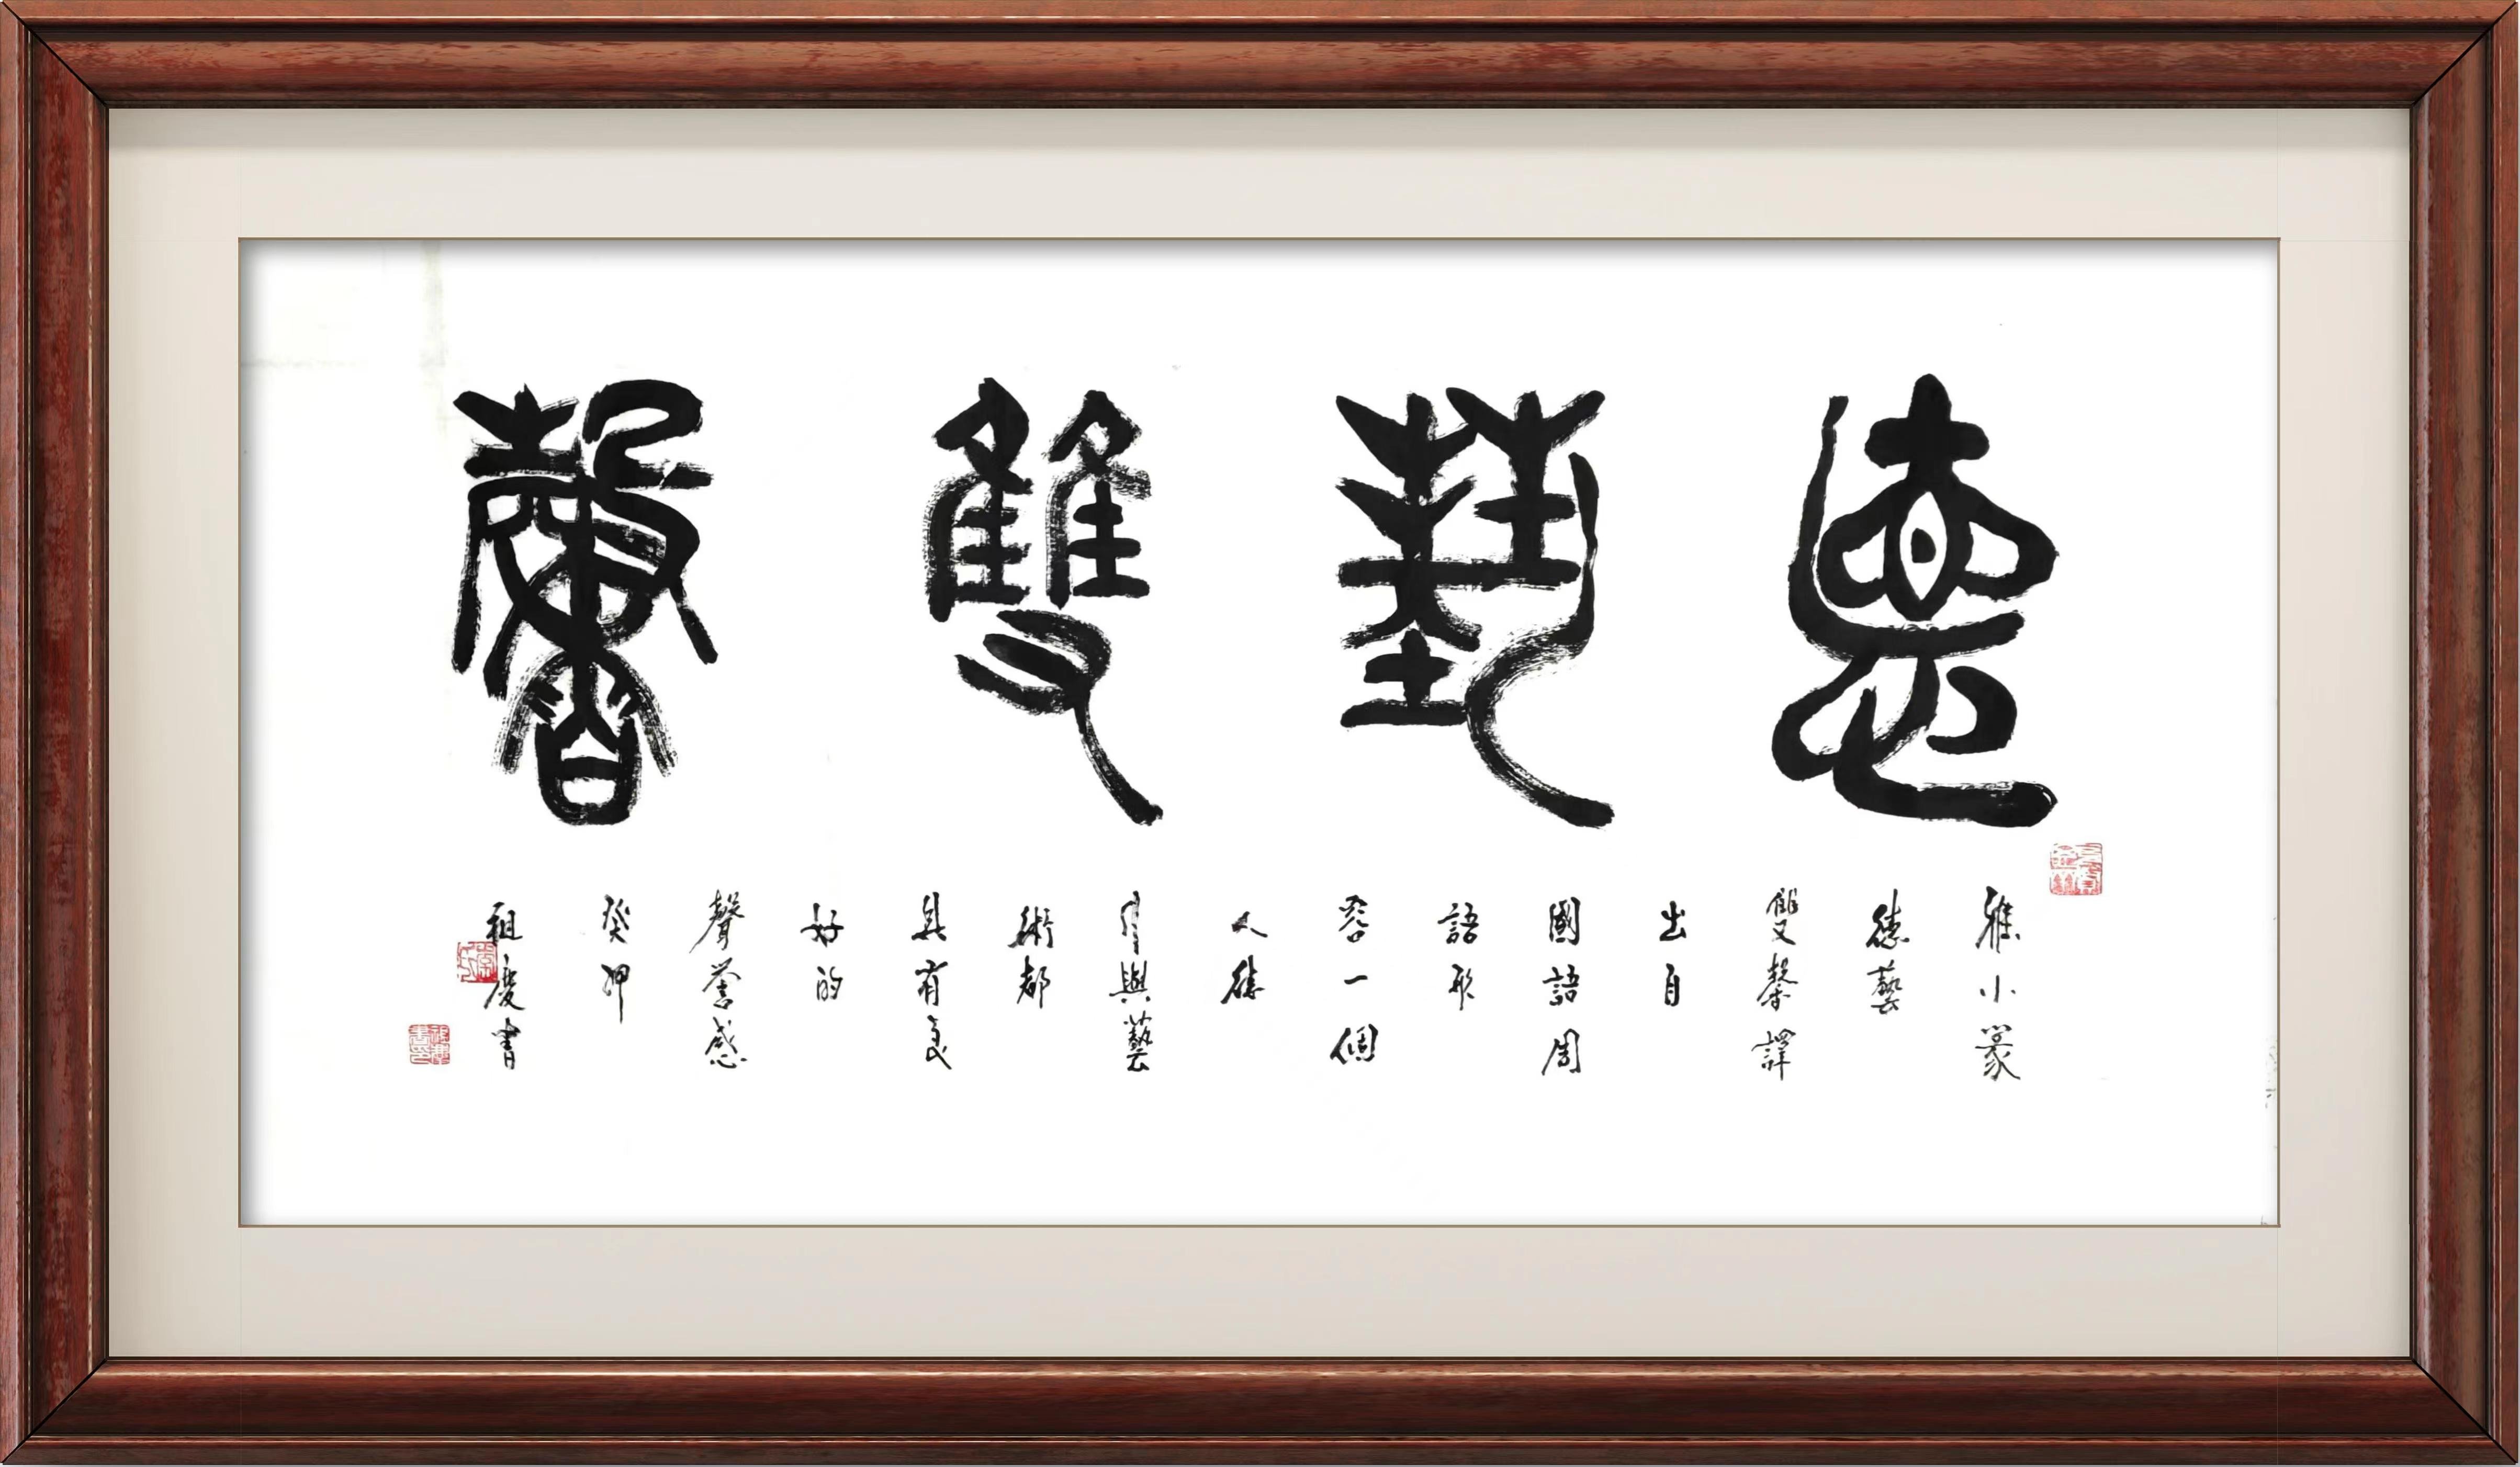 德藝雙馨
雅小篆
德藝
雙馨譯
出自
國語周
語形
容一個
人德
與藝
術都
具有美
好的
聲譽感
癸卯
祖慶書